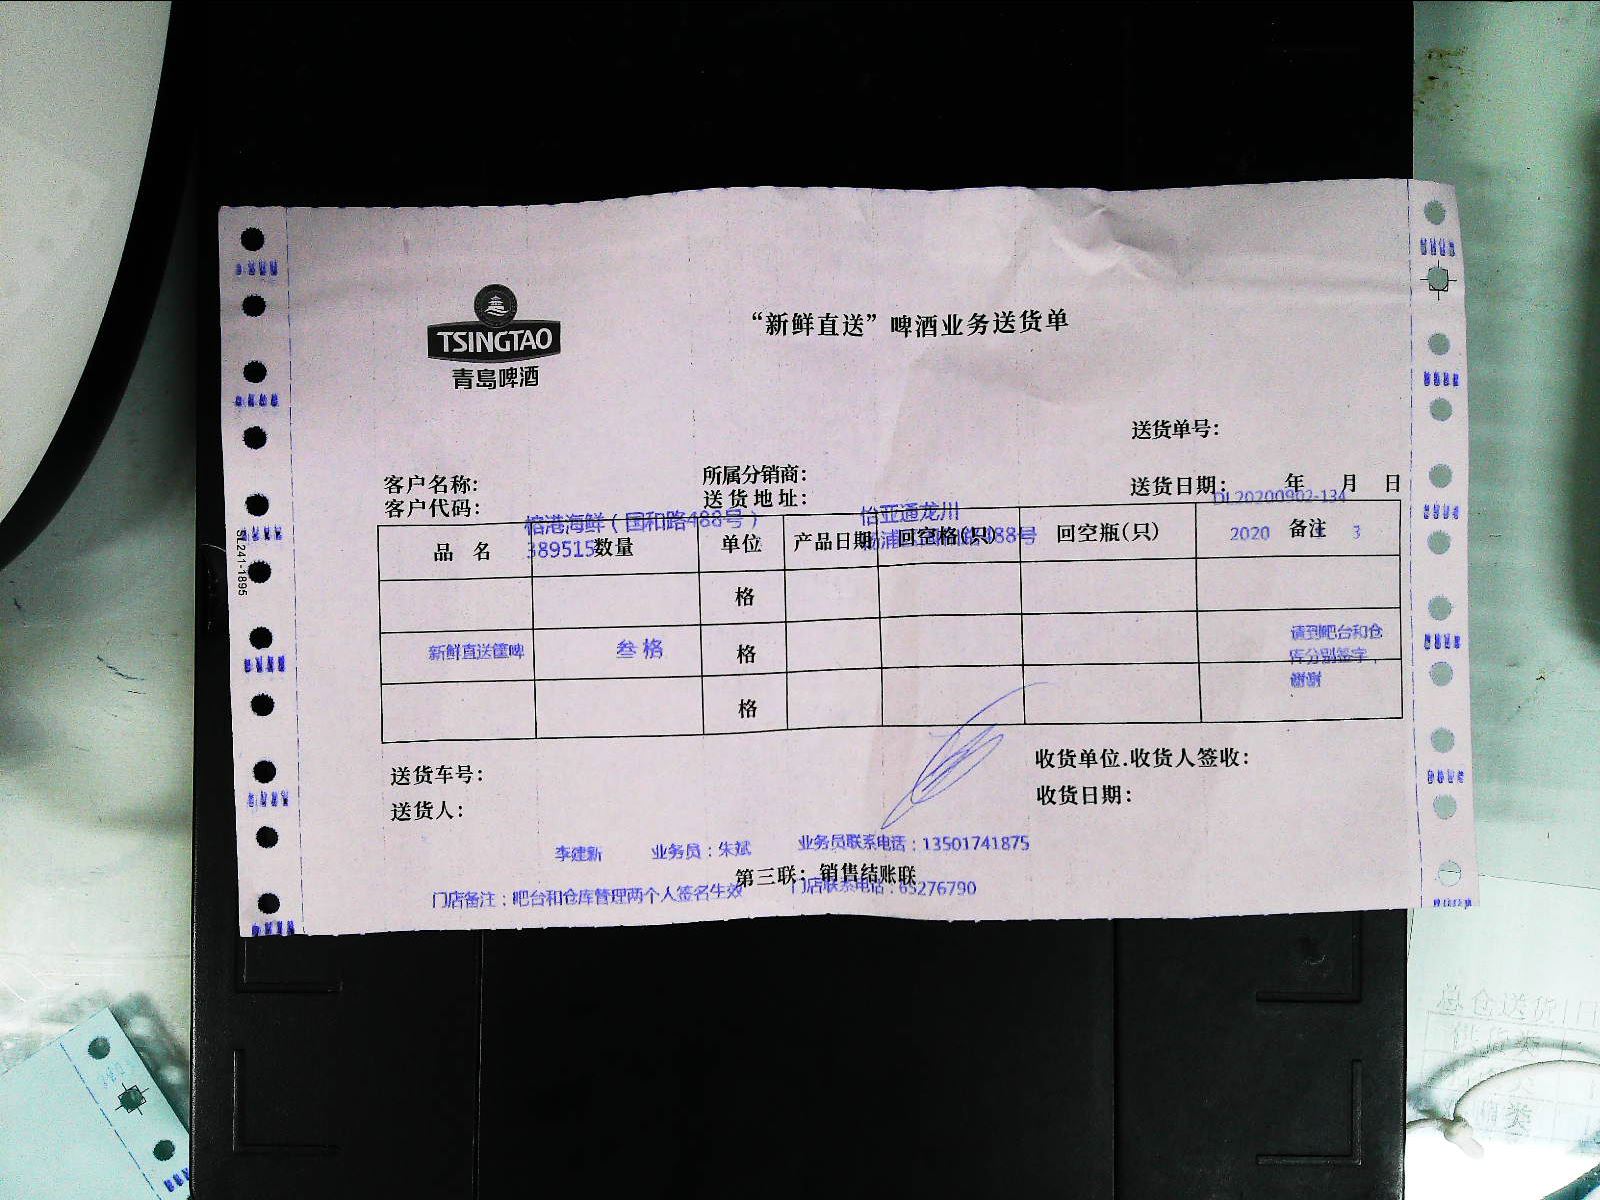 TSINGTAO
青岛啤酒
“新鲜直送”啤酒业务送货单
送货单号：
客户名称： 所属分销商： 送货日期： 年 月 日
客户代码： 送货地址： DL20200902-134
榕港海鲜（国和路488号） 怡亚通龙川
389515 488号 2020 3
品 名 数量 单位 产品日期 回空格(只) 回空瓶(只) 备注
格
新鲜直送筐啤 叁格 格 请到吧台和仓
库分别签字，
谢谢
格
送货车号： 收货单位.收货人签收：
送货人： 收货日期：
李建新 业务员：朱斌 业务员联系电话：13501741875
第三联：销售结账联
门店备注：吧台和仓库管理两个人签名生效 门店联系电话：65276790
SL241-1895
总仓送货